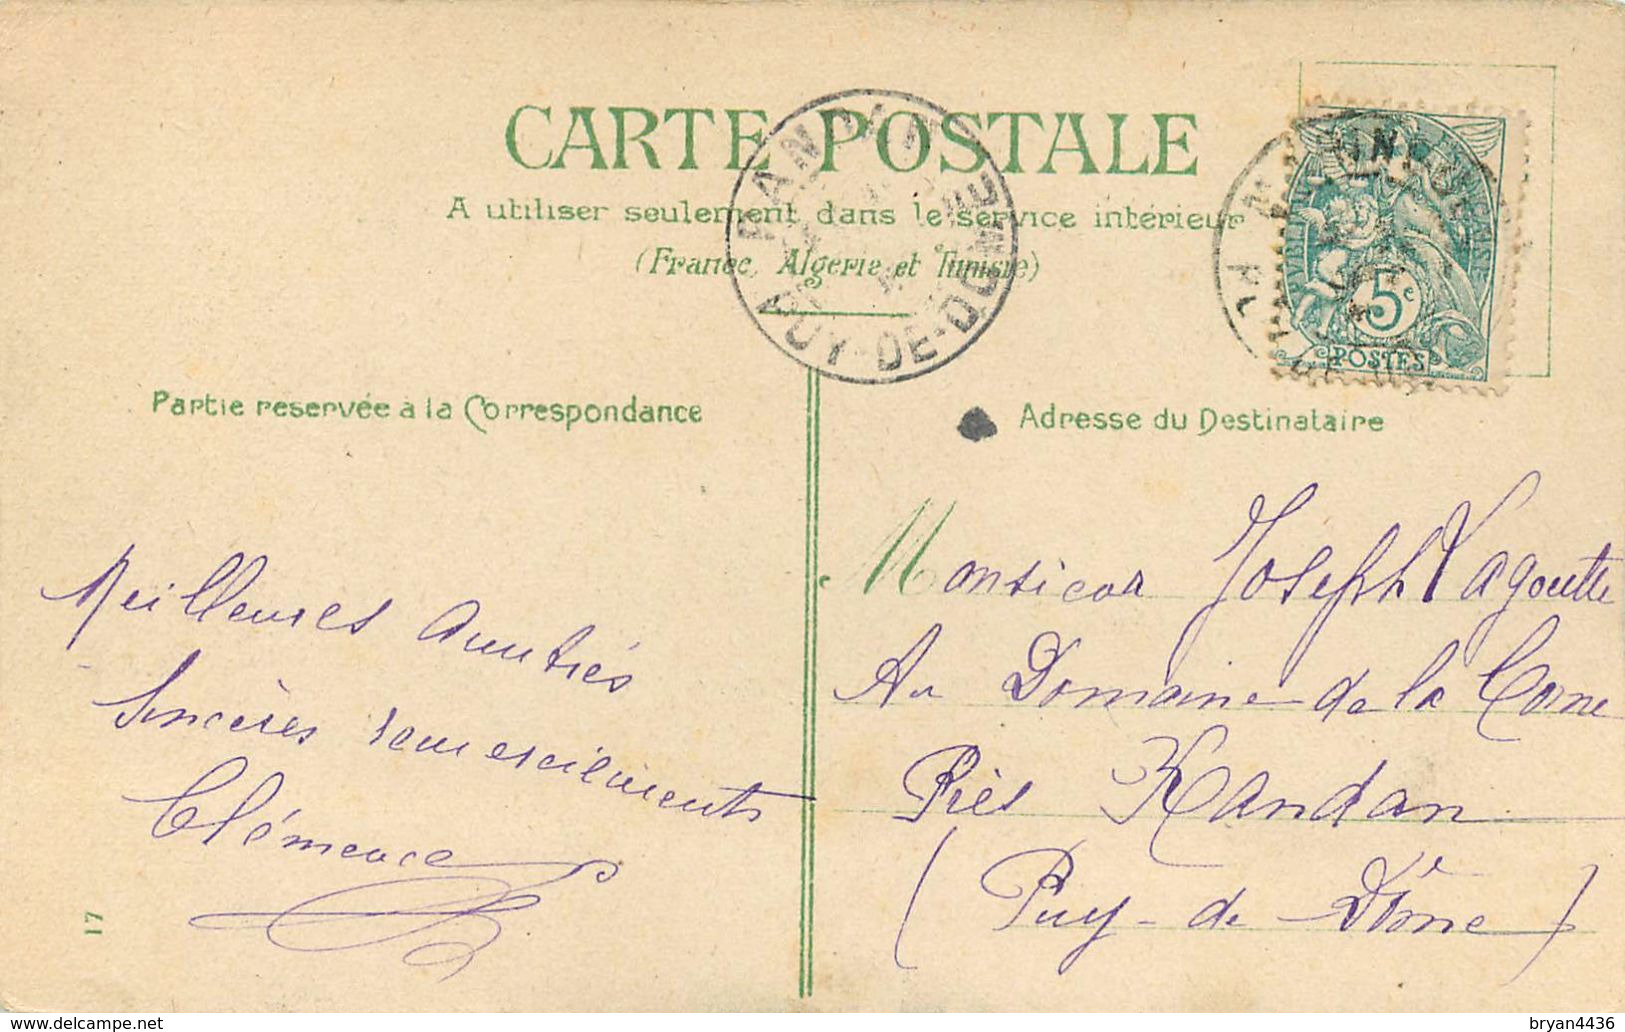 CARTE POSTALE
A utiliser seulement dans le service intérieur
(France, Algérie et Tunisie)
RANDAN
PUY-DE-DOME
5c
POSTES
Partie reservée à la Correspondance
Adresse du Destinataire
Meilleures amitiés
Sincères remerciements
Clémence
17
Monsieur Joseph Lagoutte
Au Domaine de la Corne
Près Randan
(Puy-de-Dôme)
delcampe.net
bryan4436